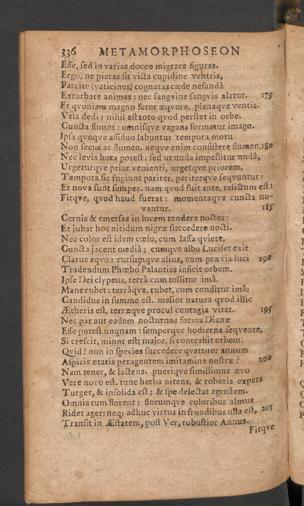 336 METAMORPHOSEON
Esse, sed in varias doceo migrare figuras.
Ergo, ne pietas sit victa cupidine ventris,
Parcite (vaticinor) cognatas cæde nefandâ
Exturbare animas: nec sangvine sangvis alatur. 175
Et qvoniam magno feror æqvore, plenaqve ventis
Vela dedi; nihil est toto qvod perstet in orbe.
Cuncta fluunt: omnisqve vagans formatur imago.
Ipsa qvoqve assiduo labuntur tempora motu
Non secus ac flumen. neqve enim consistere flumen, 180
Nec levis hora potest: sed ut unda impellitur undâ,
Urgeturqve prior venienti, urgetqve priorem,
Tempora sic fugiunt pariter, pariterqve seqvuntur:
Et nova sunt semper. nam qvod fuit ante, relictum est:
Fitqve, qvod haud fuerat: momentaqve cuncta no-
vantur. 185
Cernis & emersas in lucem tendere noctes:
Et jubar hoc nitidum nigræ succedere nocti.
Nec color est idem cœlo, cum lassa qviete,
Cuncta jacent mediâ; cumqve albo Lucifer exit
Clarus eqvo: rursumqve alius, cum prævia luci 190
Tradendum Phœbo Pallantias inficit orbem.
Ipse Dei clypeus, terrâ cum tollitur imâ,
Mane rubet: terrâqve, rubet, cum conditur imâ:
Candidus in summo est. melior natura qvod illic
Ætheris est, terræqve procul contagia vitat. 195
Nec par aut eadem nocturnæ forma Dianæ
Esse potest unqvam: semperqve hodierna seqvente,
Si crescit, minor est; major, si contrahit orbem.
Qvid? non in species succedere qvattuor annum
Aspicis ætatis peragentem imitamina nostræ? 200
Nam tener, & lactens, pueriqve simillimus ævo
Vere novo est. tunc herba nitens, & roboris expers
Turget, & insolida est; & spe delectat agrestem.
Omnia tum florent: florumqve coloribus almus
Ridet ager: neq; adhuc virtus in frondibus ulla est, 205
Transit in Æstatem, post Ver, robustior Annus.
Fitqve